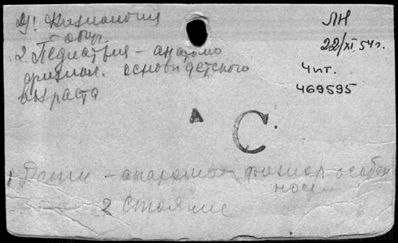 Физиология
- общ.
2. Педиатрия - анатомо
физиол. основы детского
возраста
ЛН
22/XI 54 г.
Чит.
469595
А
С
1. Дети - анатомо физиол. особен
ност
2 Стояние